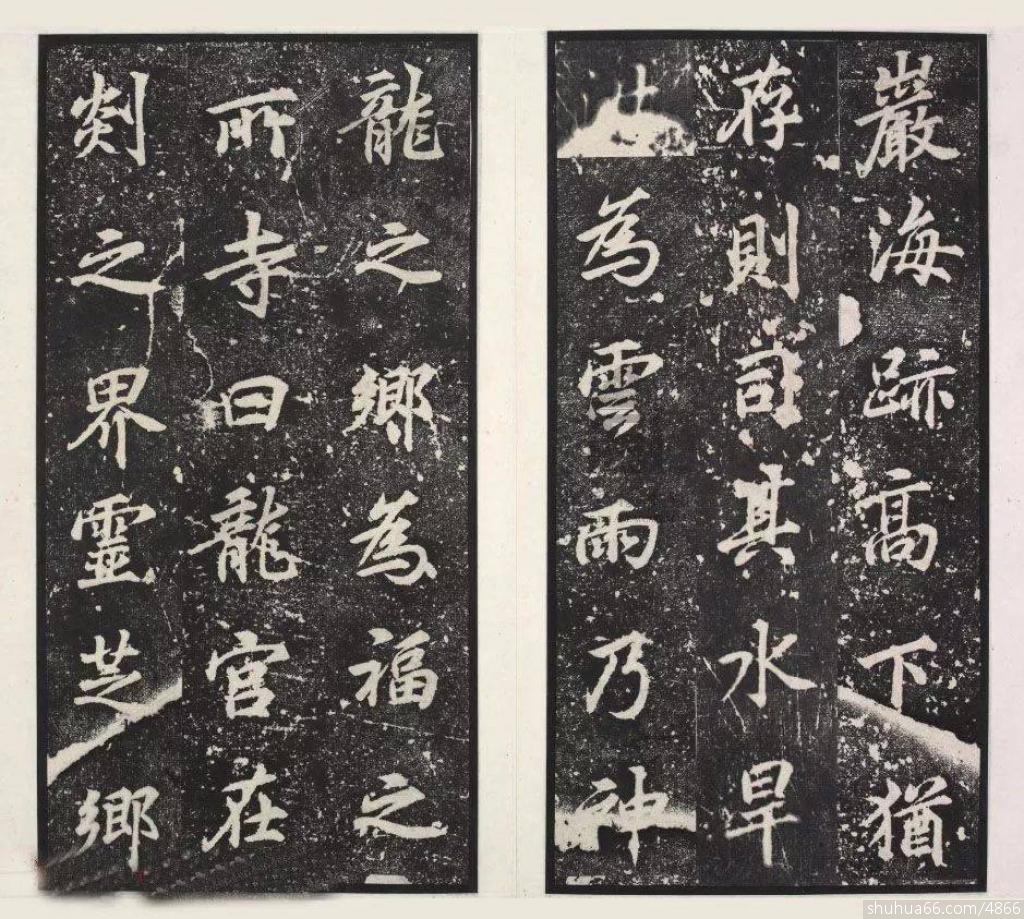 巖海跡高下猶
存則司其水旱
為雲雨乃神
龍之鄉為福之
所寺曰龍宮在
剡之界靈芝鄉
shuhua66.com/4866